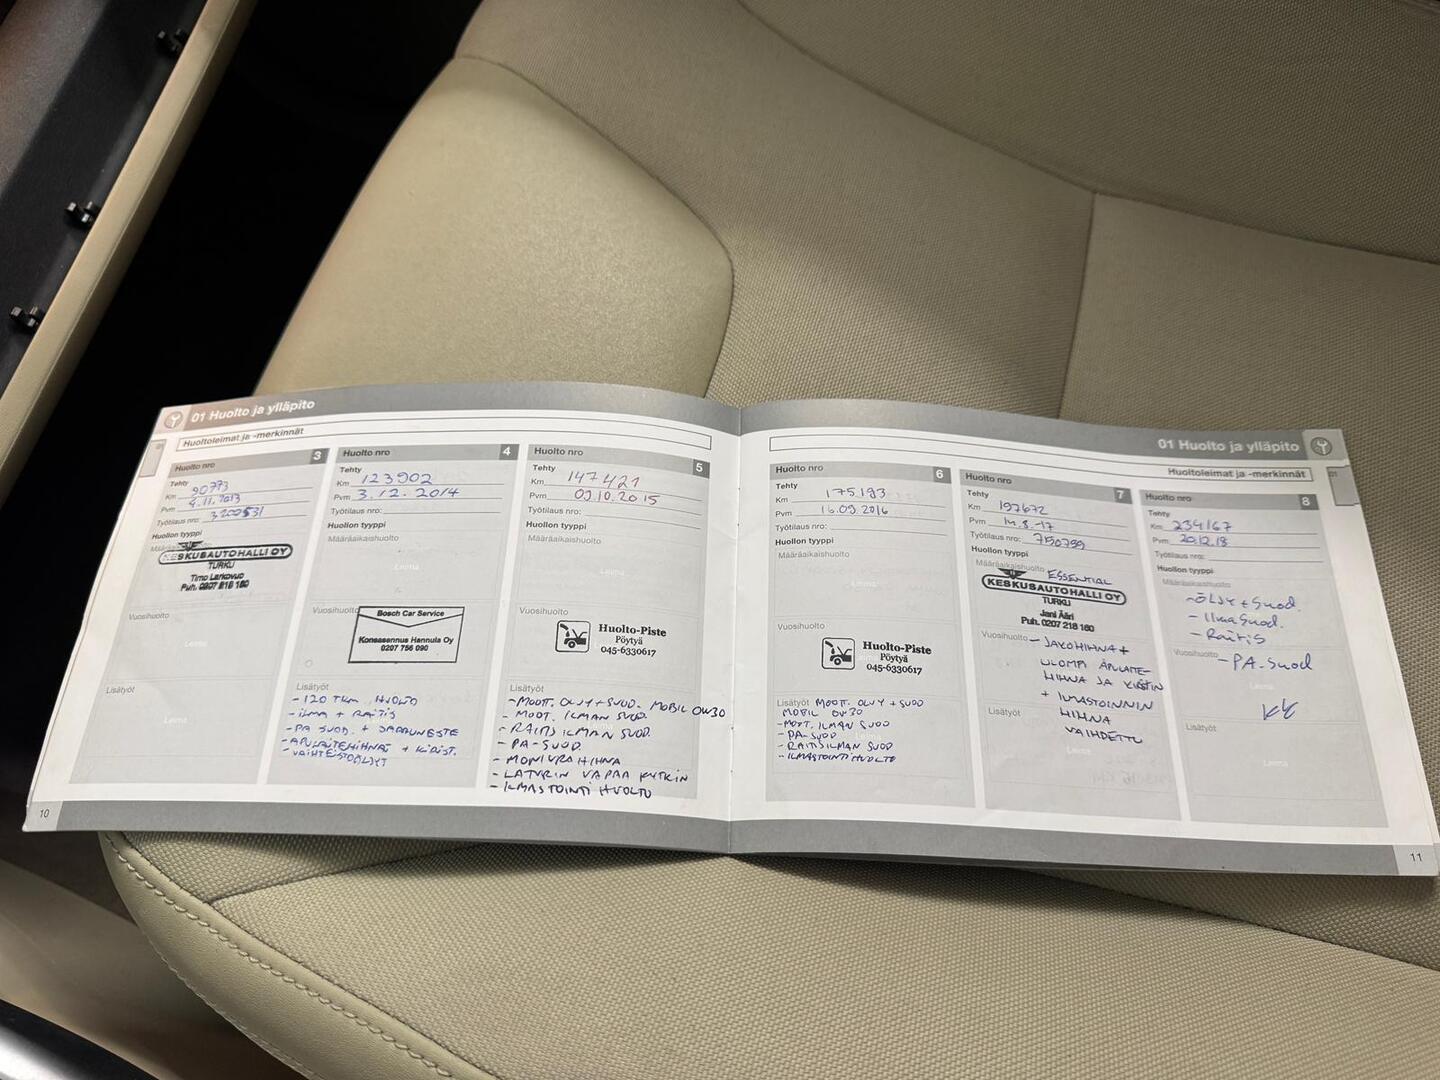 01 Huolto ja ylläpito
Huoltoleimat ja -merkinnät
Huolto nro 3
Tehty
Km 90773
Pvm 4.11.2013
Työtilaus nro: 3200531
Huollon tyyppi
Määräaikaishuolto
KESKUSAUTOHALLI OY
TURKU
Timo Larkovuo
Puh. 0207 218 160
Vuosihuolto
Leima
Lisätyöt
Leima
Huolto nro 4
Tehty
Km 123902
Pvm 3.12.2014
Työtilaus nro:
Huollon tyyppi
Määräaikaishuolto
Leima
Vuosihuolto
Bosch Car Service
Konsasennus Hannula Oy
0207 756 090
Lisätyöt
- 120 TKM HUOLTO
- ILMA + RAITIS
- PA SUOD. + JARRUNESTE
- APULAITEHIHNAT + KIRIST.
- VAIHTEISTOÖLJYT
Huolto nro 5
Tehty
Km 147421
Pvm 09.10.2015
Työtilaus nro:
Huollon tyyppi
Määräaikaishuolto
Leima
Vuosihuolto
Huolto-Piste
Pöytyä
045-6330617
Lisätyöt
- MOOTT. ÖLJY + SUOD. MOBIL 0W30
- MOOT. ILMAN SUOD.
- RAITIS ILMAN SUOD.
- PA-SUOD.
- MONIURAHIHNA
- LATURIN VAPAA KYTKIN
- ILMASTOINTI HUOLTO
10
01 Huolto ja ylläpito
Huoltoleimat ja -merkinnät
01
Huolto nro 6
Tehty
Km 175193
Pvm 16.09.2016
Työtilaus nro:
Huollon tyyppi
Määräaikaishuolto
Leima
Vuosihuolto
Huolto-Piste
Pöytyä
045-6330617
Lisätyöt MOOTT. ÖLJY + SUOD
MOBIL 0W30
- MOOT. ILMAN SUOD
- PA-SUOD
- RAITISILMAN SUOD
- ILMASTOINTIHUOLTO
Huolto nro 7
Tehty
Km 197672
Pvm 14.8.-17
Työtilaus nro: 7150799
Huollon tyyppi
Määräaikaishuolto ESSENTIAL
KESKUSAUTOHALLI OY
TURKU
Jani Ääri
Puh. 0207 218 160
Vuosihuolto - JAKOHIHNA +
ULOMPI APULAITE-
HIHNA JA KIRISTIN
+ ILMASTOINNIN
Lisätyöt HIHNA
VAIHDETTU
Leima
Huolto nro 8
Tehty
Km 234167
Pvm 20.12.18
Työtilaus nro:
Huollon tyyppi
Määräaikaishuolto
- ÖLJY + Suod.
- Ilmasuod.
- Raitis
Vuosihuolto - PA-Suod
Leima
Lisätyöt
Leima
11